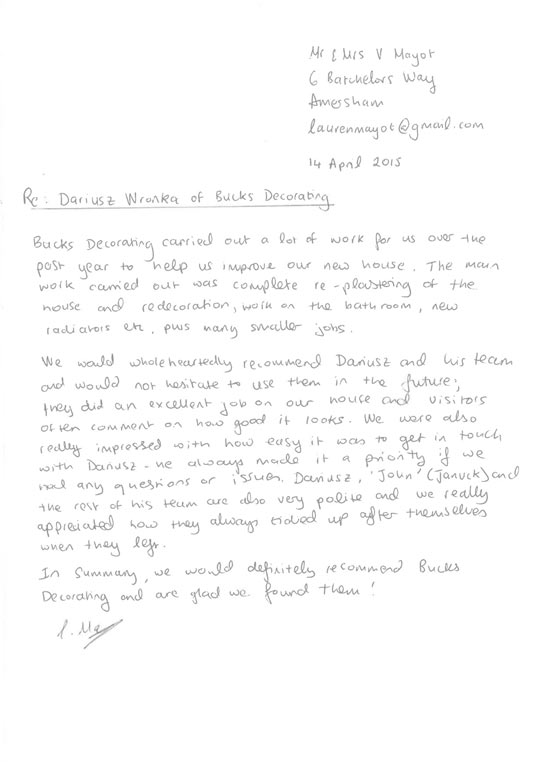 Mr & Mrs V Mayot
6 Batchelors Way
Amersham
laurenmayot@gmail.com
14 April 2015
Re: Dariusz Wronka of Bucks Decorating
Bucks Decorating carried out a lot of work for us over the
past year to help us improve our new house. The main
work carried out was complete re-plastering of the
house and redecoration, work on the bathroom, new
radiators etc, plus many smaller jobs.
We would wholeheartedly recommend Dariusz and his team
and would not hesitate to use them in the future;
they did an excellent job on our house and visitors
often comment on how good it looks. We were also
really impressed with how easy it was to get in touch
with Dariusz - he always made it a priority if we
had any questions or issues. Dariusz, 'John' (Januck) and
the rest of his team are also very polite and we really
appreciated how they always tidied up after themselves
when they left.
In summary, we would definitely recommend Bucks
Decorating and are glad we found them!